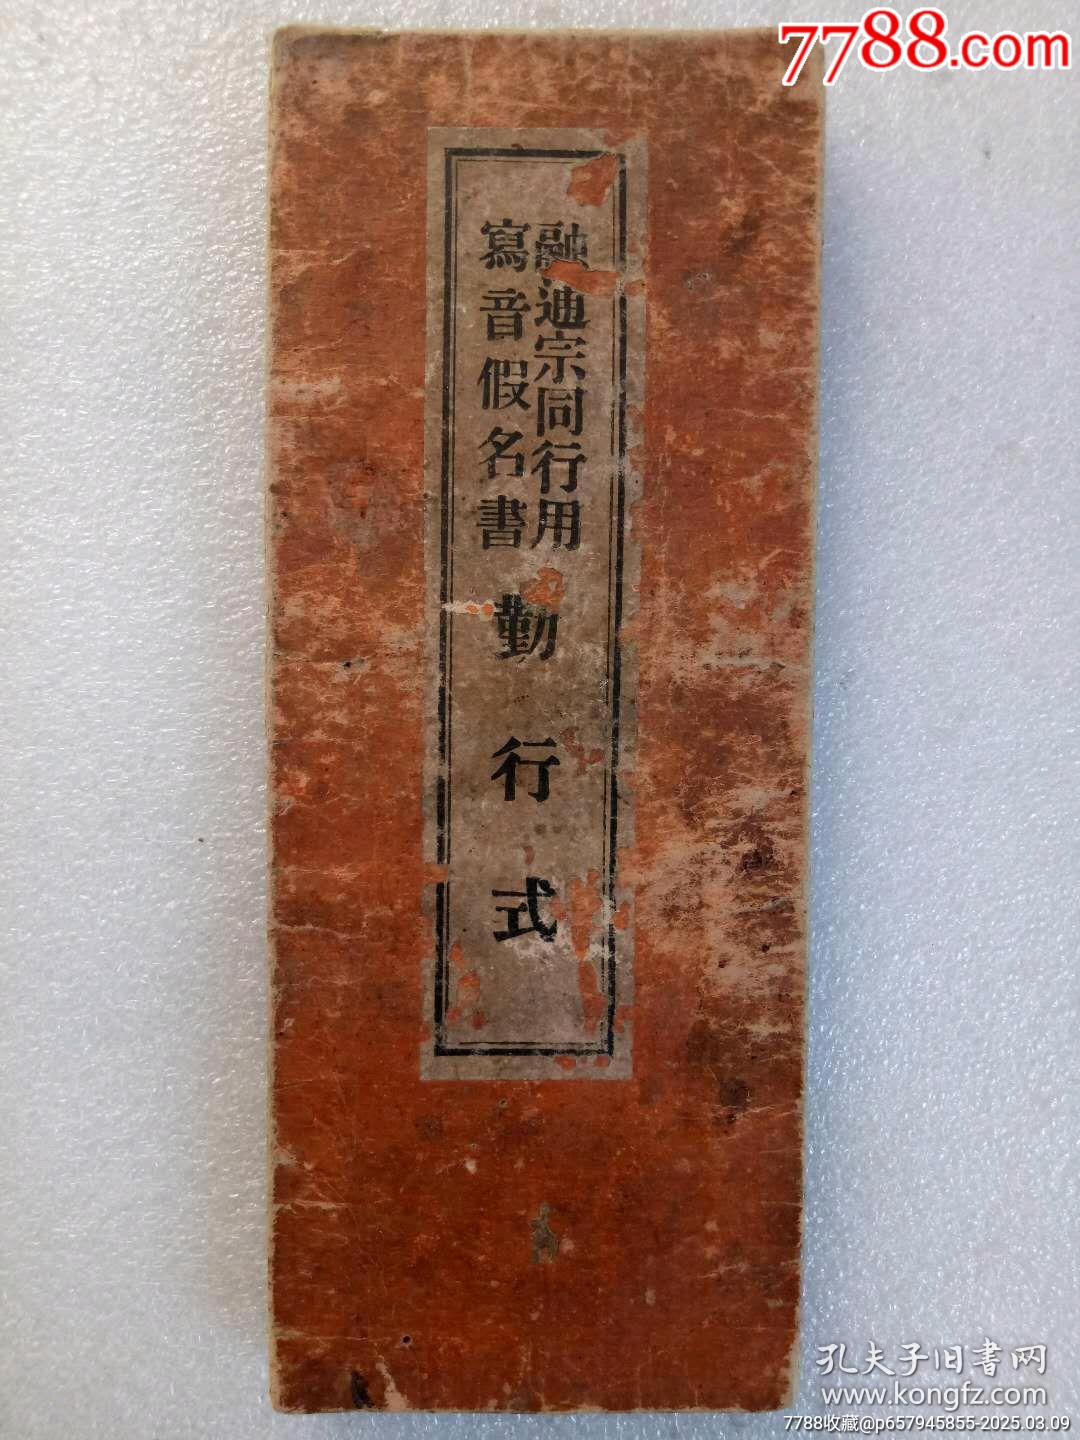 7788.com
融通宗同行用
寫音假名書
勤行式
孔夫子旧書网
www.kongfz.com
7788收藏@p657945855-2025.03.09